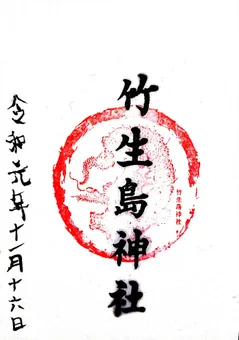 竹生島神社
竹生島神社
令和元年十一月十六日